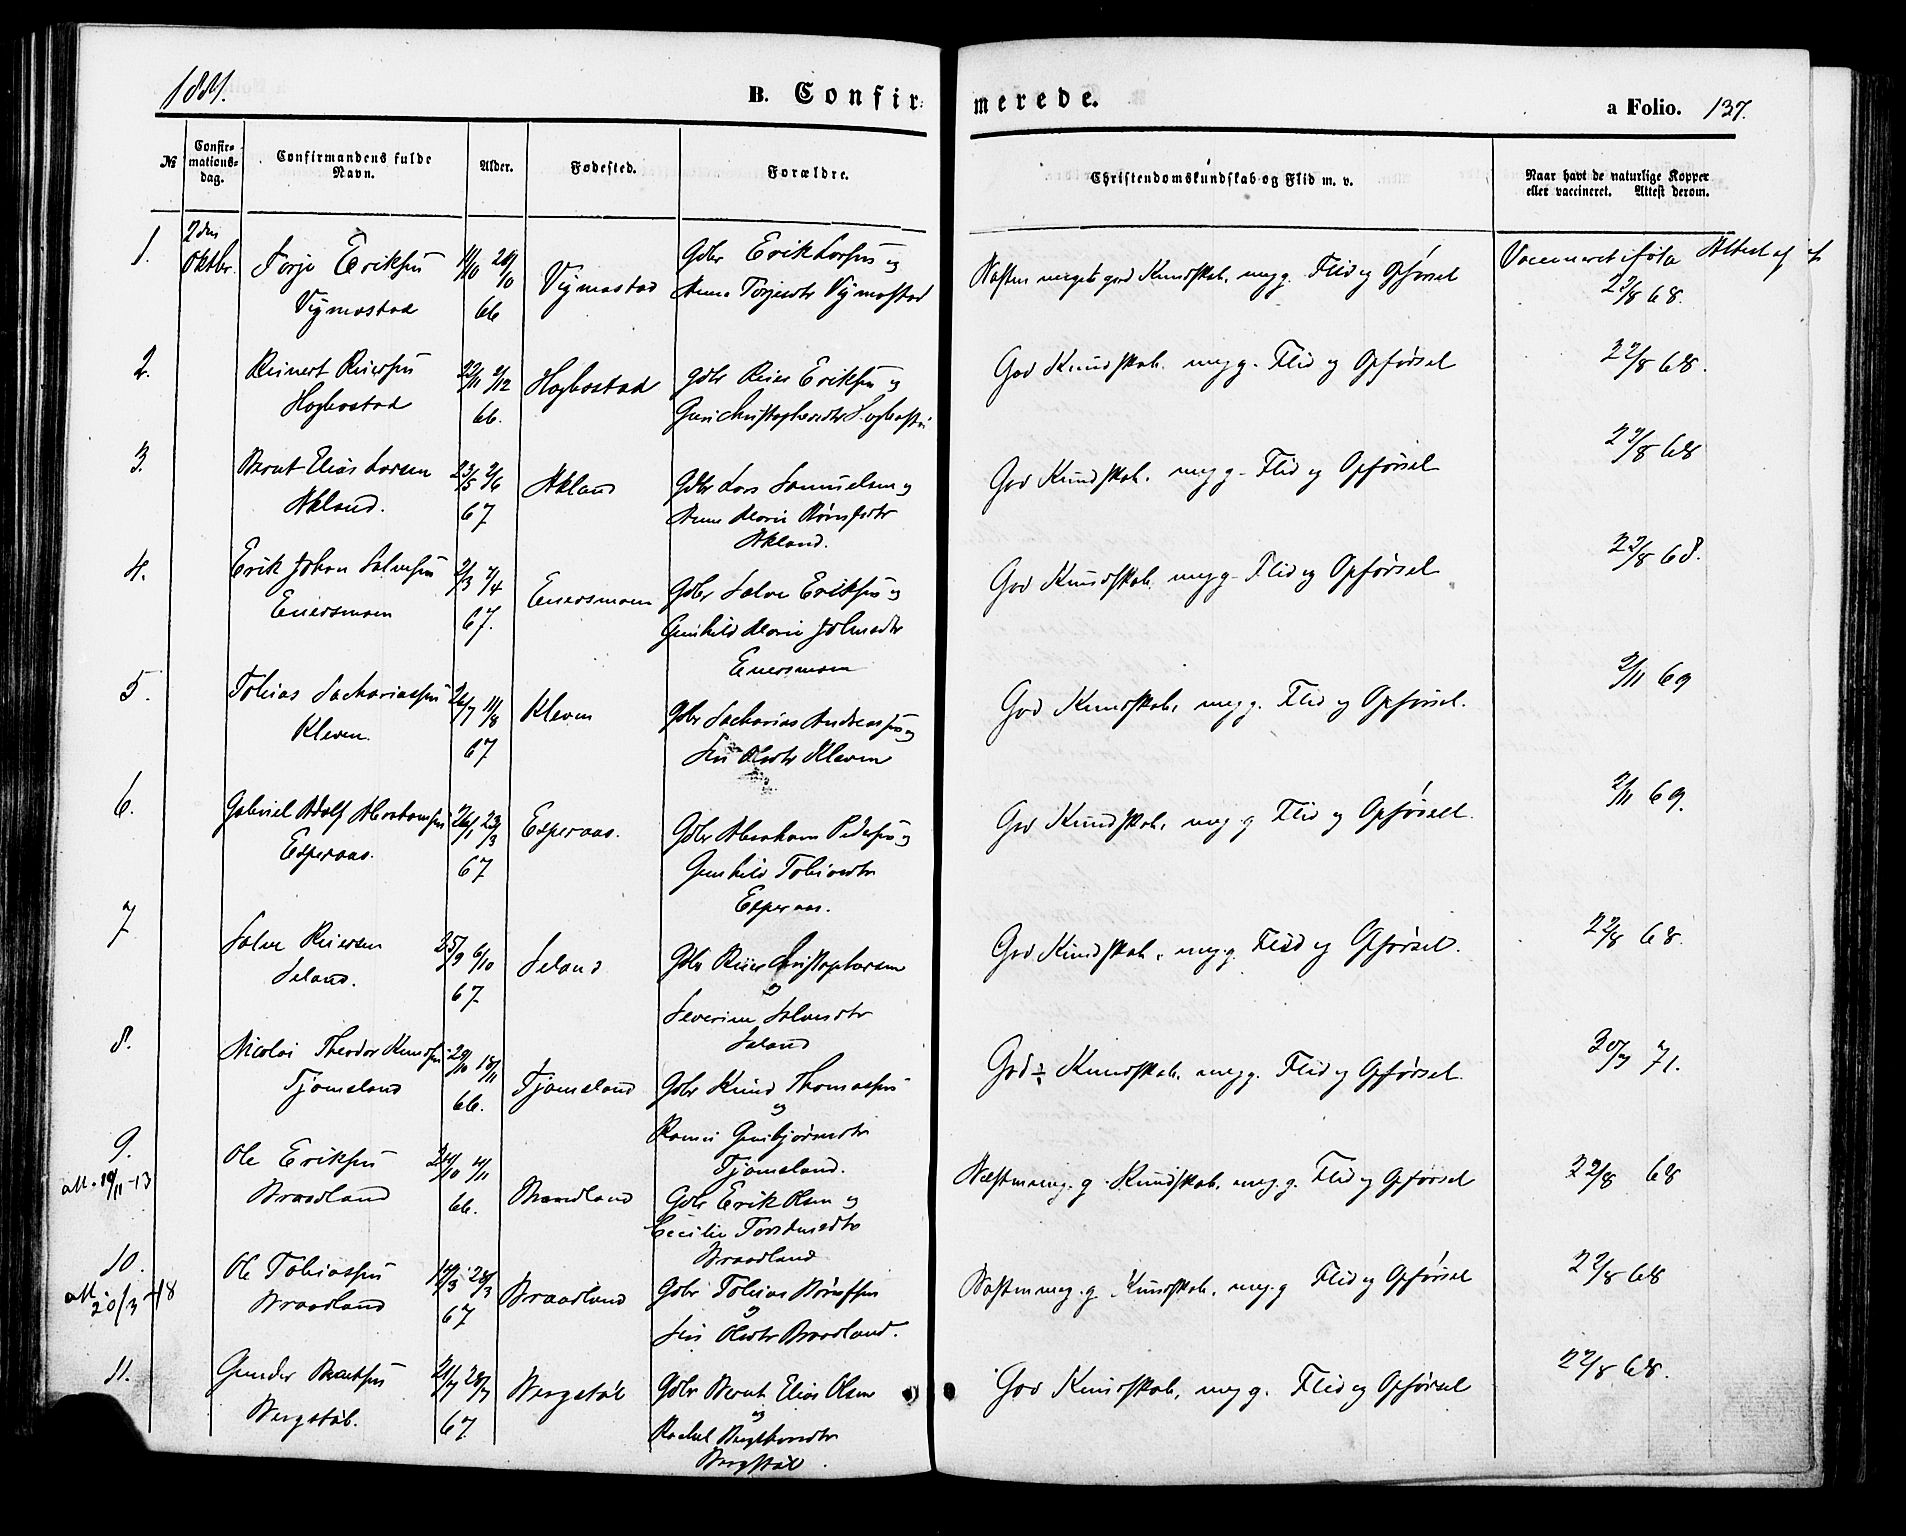 1881.
B. Confirmerede.
a Folio. 137.
№
Confir-
mations-
dag.
Confirmandens fulde
Navn.
Alder.
Fødested.
Forældre.
Christendomskundskab og Flid m. v.
Naar havt de naturlige Kopper
eller vaccineret. Attest derom.
1. 2den Oktbr. Torje Eriksen Vigmostad 11/10 28/10 66 Vigmostad Gdbr Erik Larsen og Anna Torjesdtr Vigmostad Næsten meget god Kundskab, meg g. Flid og Opførsel Vaccineret Attest af 22/8 68.
2. Reinert Reiersen Høgbostad 22/11 2/12 66. Høgbostad Gdbr Reier Eriksen og Guri Christophersdtr Høgbostad God Kundskab. meg g. Flid og Opførsel 22/8 68.
3. Bernt Elias Larsen Akland. 23/5 2/6 67 Akland Gdbr Lars Samuelsen og Anne Marie Akland. God Kundskab. meg g. Flid og Opførsel 22/8 68
4. Erik Johan Salvesen Eversmoen 2/3 7/4 67. Eversmoen Gdbr Salve Eriksen og Gunhild Marie Eversmoen God Kundskab. meg g. Flid og Opførsel 22/8 68.
5. Tobias Sachariassen Kleven. 26/7 11/8 67 Kleven Gdbr Sacharias Andreassen og Siri Olsdtr Kleven God Kundskab, meg g. Flid og Opførsel. 2/11 69
6. Gabriel Adolf Abrahamsen Esperaas. 26/1 23/3 67 Esperaas. Gdbr Abraham Pedersen og Gunhild Tobiasdtr Esperaas. God Kundskab, meg g Flid og Opførsel. 2/11 69.
7 Salve Reiersen Seland. 25/9 6/10 67. Seland Gdbr Reier Christophersen og Severine Salvesdtr Seland God Kundskab, meg g. Flid og Opførsel. 22/8 68.
8. Nicolai Theodor Knudsen Tjomsland 29/10 18/11 66. Tjomsland Gdbr Knud Thomassen og Gunbjørnsdtr Tjomsland. God ÷ Kundskab, meg g. Flid og Opførsel. 71.
9. att. 19/11-13 Ole Eriksen Braadland 24/10 4/11 66. Braadland Gdbr Erik Olsen og Cecilie Braadland Næsten meg. g. Kundskab, meg. g. Flid og Opførsel 22/8 68
10. att. 20/3-18 Ole Tobiassen Braadland 28/3 67 Braadland Gdbr Tobias og Siri Olsdtr Braadland. Næsten meg. g Kundskab, meg. g Flid og Opførsel 22/8 68
11. Gunder Berntsen Bergstøl. 21/7 28/7 67. Bergstøl Gdbr Bernt Elias Olsen og Rachel Bergstøl. God Kundskab, meg g. Flid og Opførsel 22/8 68.